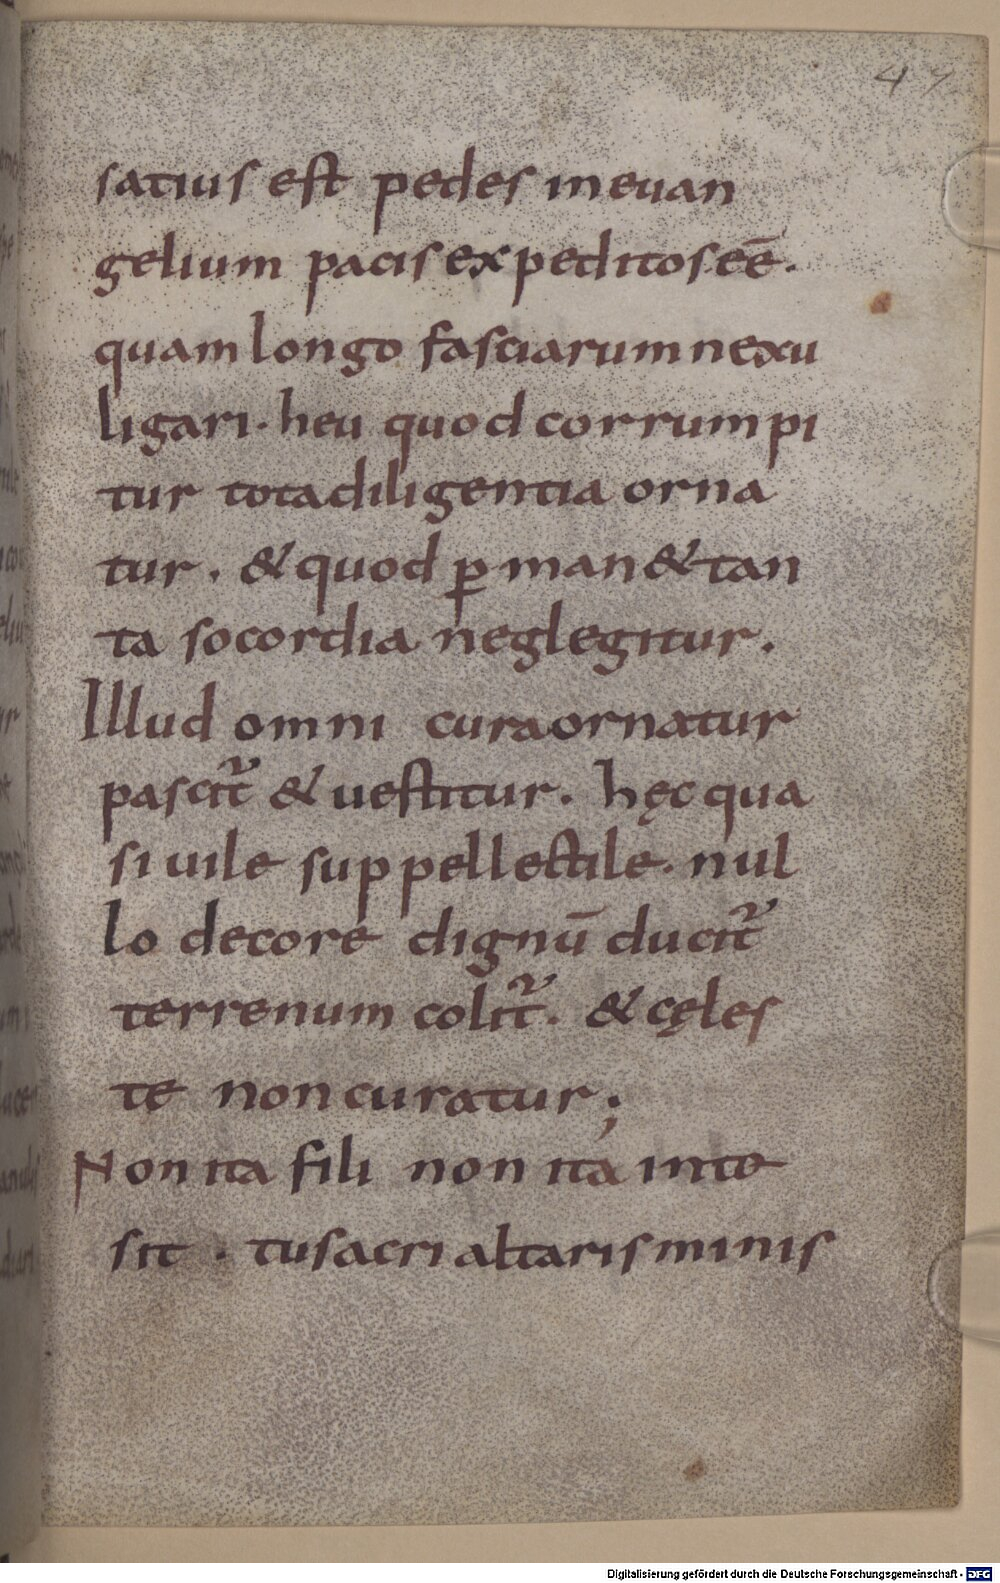 47
satius est pedes in euan
gelium pacis expeditos eē.
quam longo fasciarum nexu
ligari. heu quod corrumpi
tur tota diligentia orna
tur. & quod ꝑman& tan
ta socordia neglegitur.
Illud omni cura ornatur
pascit᷑ & uestitur. hęc qua
si uile suppellectile. nul
lo decore dignū ducit᷑
terrenum colit᷑. & cęles
te non curatur;
Non ita fili non ita inte
sit. tu sacri altaris minis
Digitalisierung gefördert durch die Deutsche Forschungsgemeinschaft - DFG